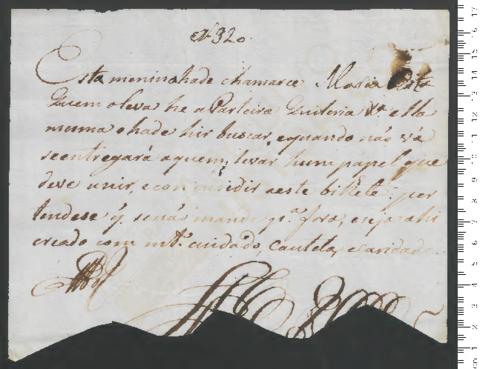 Nº 32.
Esta menina hade chamarce Maria
Quem o leva he a Parteira Quiteria Vª e ella
mesma o hade hir buscar, e quando não vá
se entregará a quem levar hum papel que
deve unir, e coincidir a este bilhete: per
tendese q̃ senaõ mande pª fora, e seja ahi
creado com mtº cuidado, cautela, e caridade